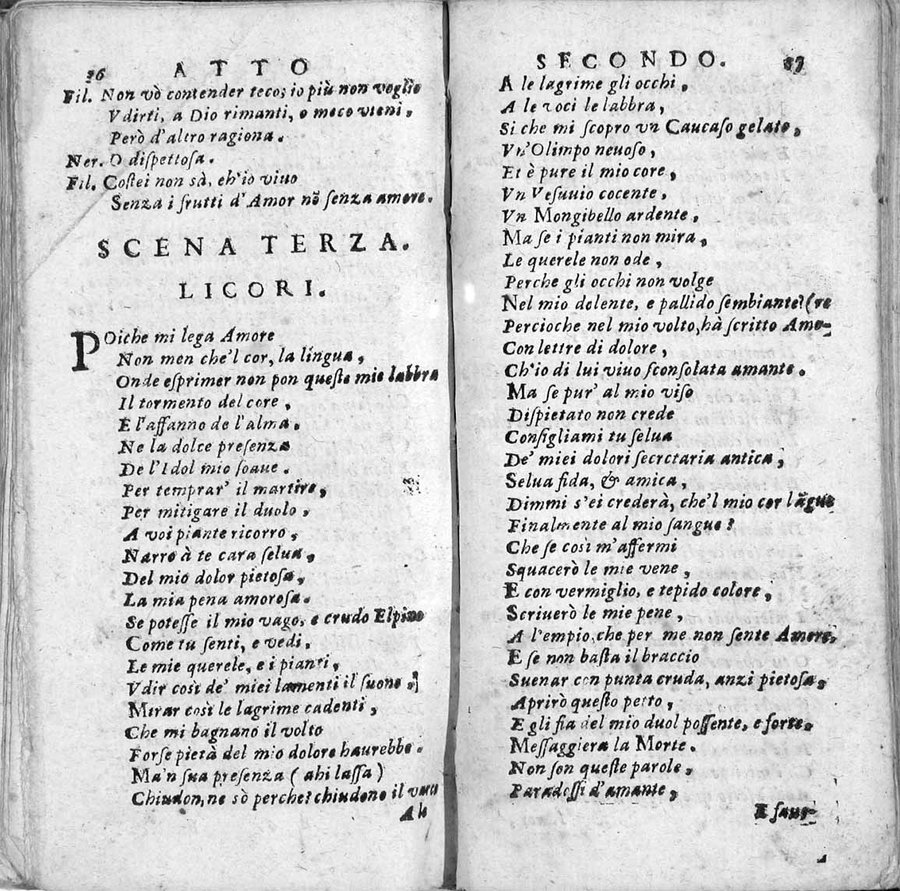 36 ATTO
Fil. Non vò contender teco; io più non voglio
Vdirti, a Dio rimanti, o meco vieni,
Però d'altro ragiona.
Ner. O dispettosa.
Fil. Costei non sà, ch'io viuo
Senza i frutti d'Amor nõ senza amore.
SCENA TERZA.
LICORI.
POiche mi lega Amore
Non men che'l cor, la lingua,
Onde esprimer non pon queste mie labbra
Il tormento del core,
E l'affanno de l'alma.
Ne la dolce presenza
De l'Idol mio soaue.
Per temprar' il martire,
Per mitigare il duolo,
A voi piante ricorro,
Narro à te cara selua,
Del mio dolor pietosa,
La mia pena amorosa.
Se potesse il mio vago, e crudo Elpino
Come tu senti, e vedi,
Le mie querele, e i pianti,
Vdir così de' miei lamenti il suono,
Mirar così le lagrime cadenti,
Che mi bagnano il volto
Forse pietà del mio dolore haurebbe.
Ma'n sua presenza (ahi lassa)
Chiudon, ne sò perche? chiudono il
A le
SECONDO. 37
A le lagrime gli occhi,
A le voci le labbra,
Si che mi scopro vn Caucaso gelato,
Vn'Olimpo neuoso,
Et è pure il mio core,
Vn Vesuuio cocente,
Vn Mongibello ardente,
Ma se i pianti non mira,
Le querele non ode,
Perche gli occhi non volge
Nel mio dolente, e pallido sembiante? (re
Percioche nel mio volto, hà scritto Amo-
Con lettre di dolore,
Ch'io di lui viuo sconsolata amante.
Ma se pur' al mio viso
Dispietato non crede
Consigliami tu selua
De' miei dolori secretaria antica,
Selua fida, & amica,
Dimmi s'ei crederà, che'l mio cor lãgue
Finalmente al mio sangue?
Che se così m'affermi
Squacerò le mie vene,
E con vermiglio, e tepido colore,
Scriuerò le mie pene,
A l'empio, che per me non sente Amore,
E se non basta il braccio
Suenar con punta cruda, anzi pietosa,
Aprirò questo petto,
E gli fia del mio duol possente, e forte,
Messaggiera la Morte.
Non son queste parole,
Paradossi d'amante,
E saue-